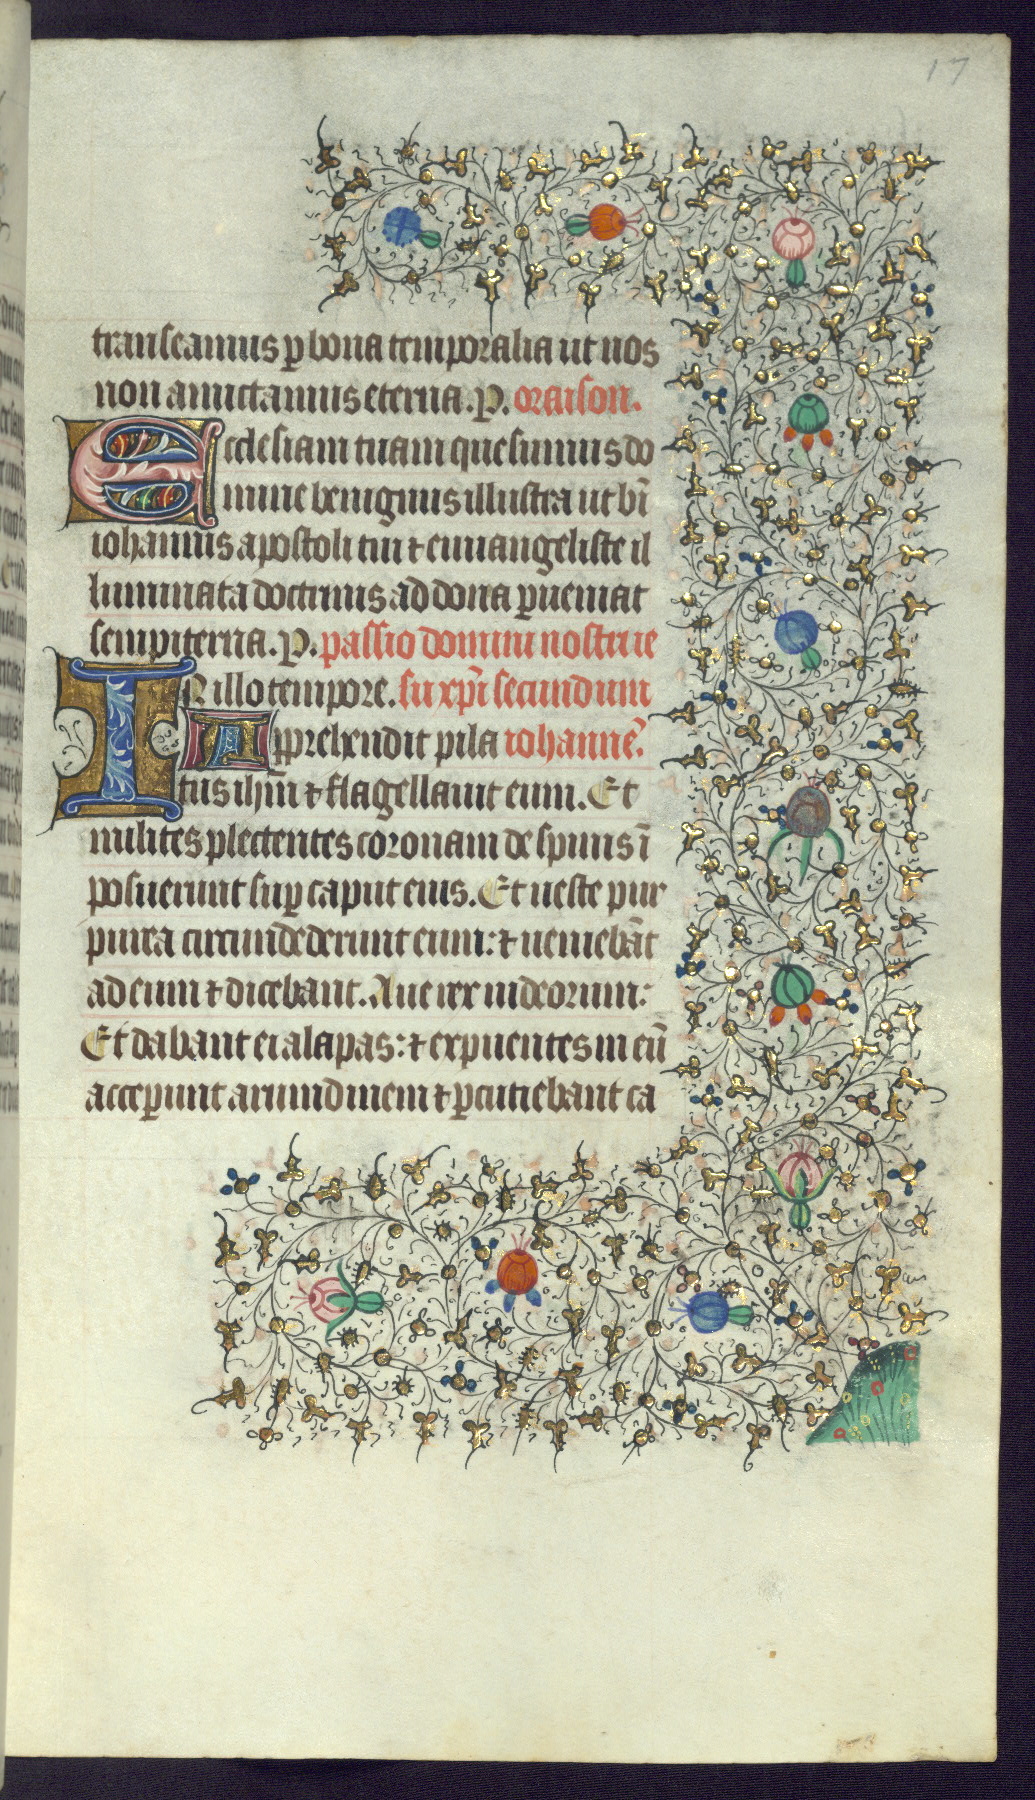 17
transeamus p bona temporalia ut nos
non amictamus eterna. P. oraison.
Ecclesiam tuam quesumus do
mine benignus illustra ut bī
iohannis apostoli tui ⁊ euuangeliste il
luminata doctrinis ad dona pueniat
sempiterna. P. passio domini nostri ie
In illo tempore. su xp̄i secundum
Apprehendit pila iohannē.
tus ihm̄ ⁊ flagellauit eum. Et
milites plectentes coronam de spinis ī
posuerunt sup caput eius. Et ueste pur
purea circundederunt eum: ⁊ ueniebāt
ad eum ⁊ dicebant. Aue rex iudeorum:
Et dabant ei alapas: ⁊ expuentes in eū
acceperunt arundinem ⁊ pcutiebant ca